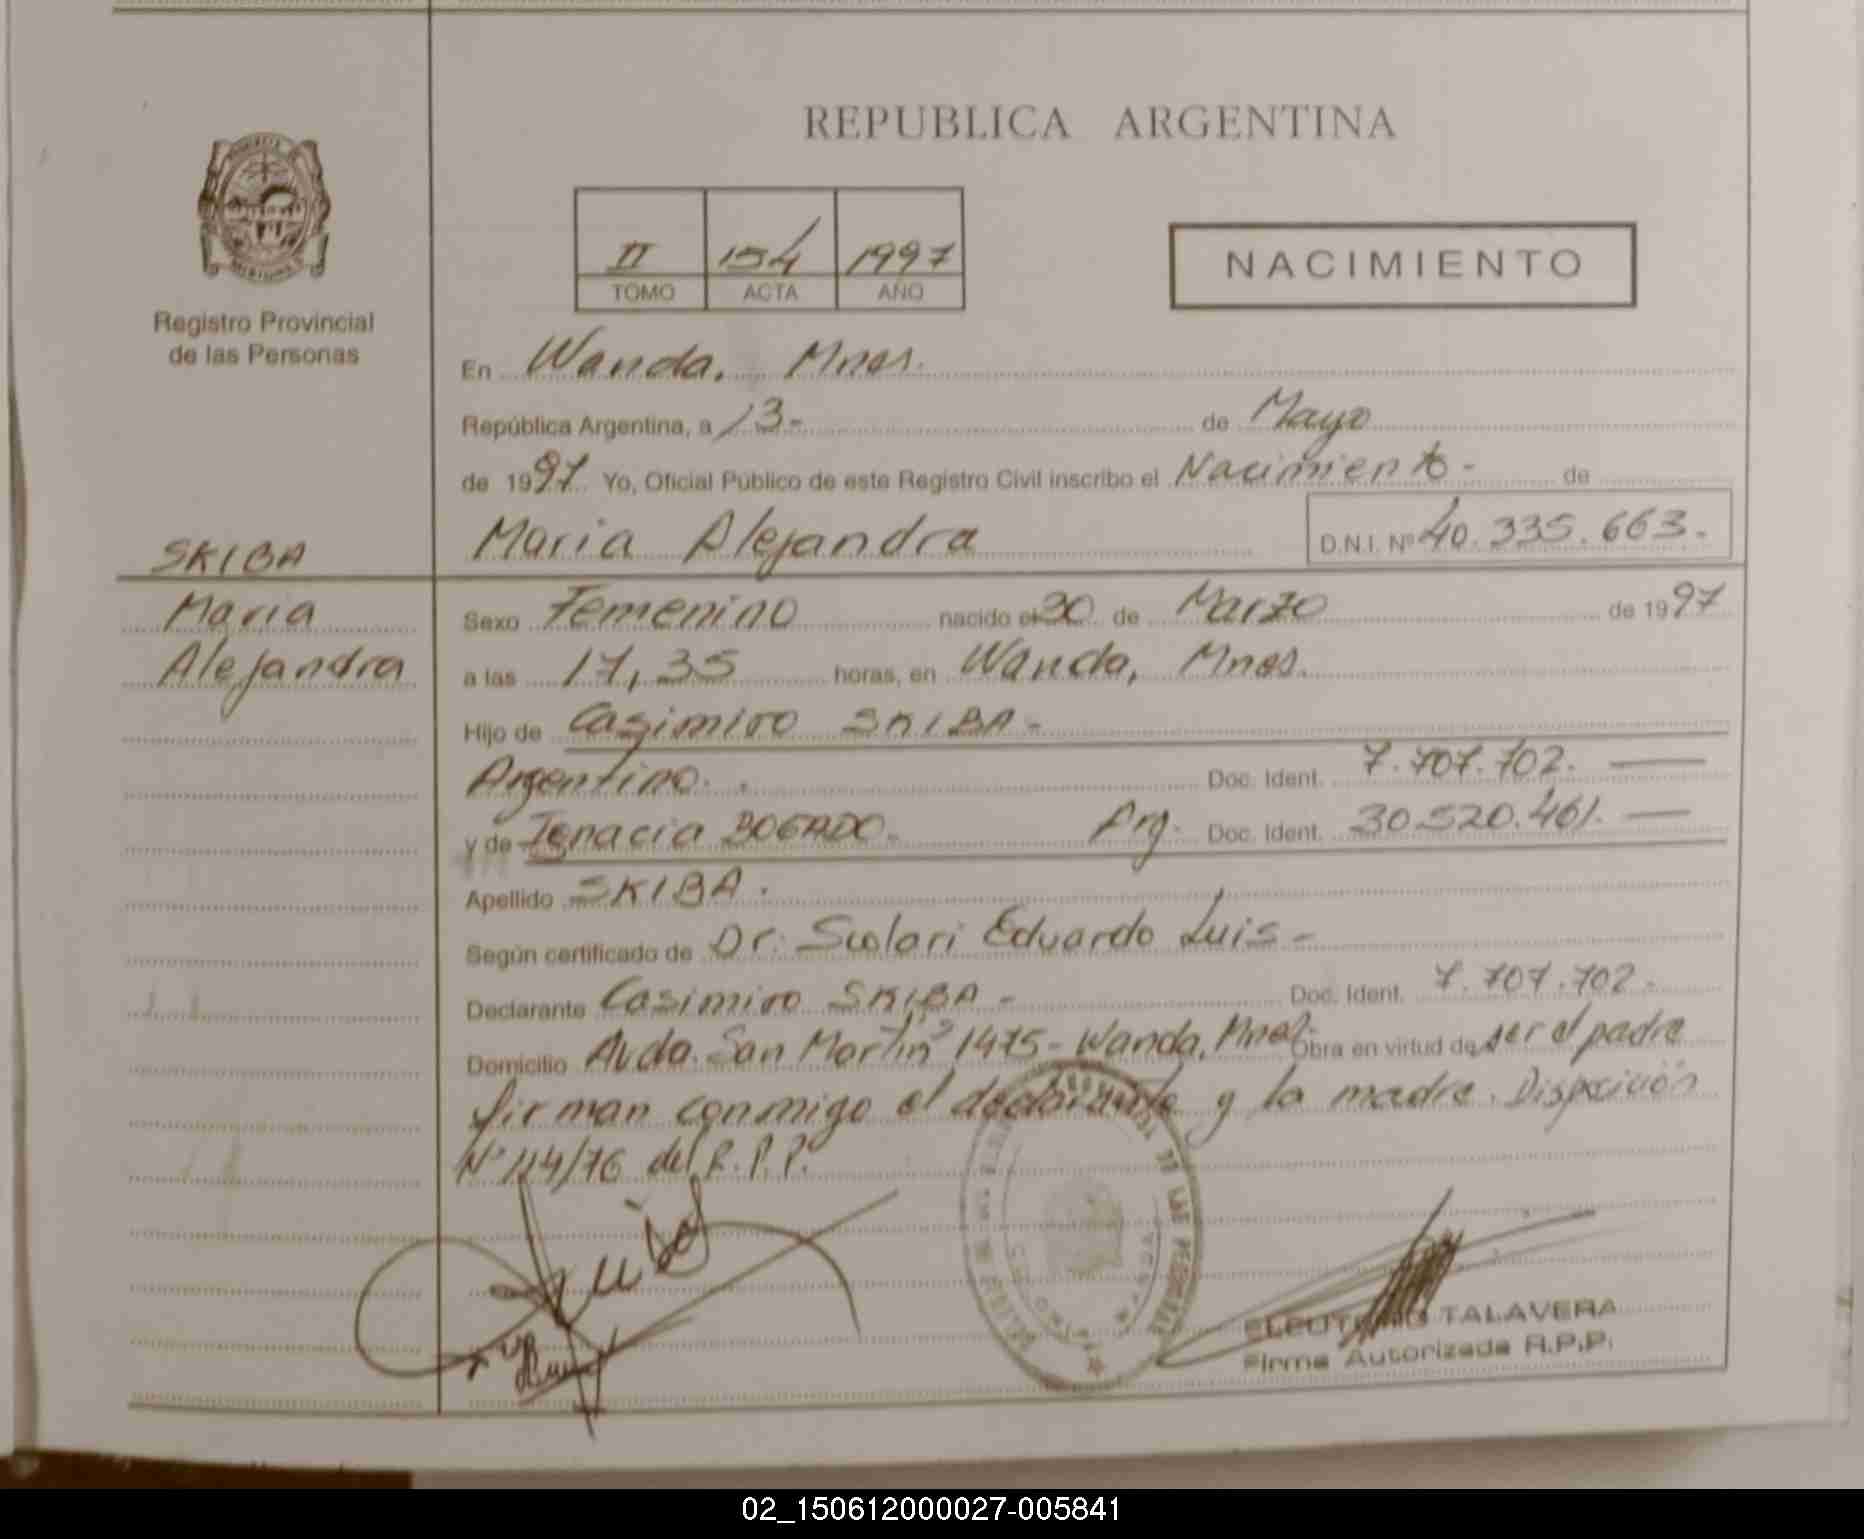 REPUBLICA ARGENTINA
II 154 1997
TOMO ACTA AÑO
NACIMIENTO
Registro Provincial
de las Personas
En Wanda, Mnes.
República Argentina, a 13- de Mayo
de 1997. Yo, Oficial Público de este Registro Civil inscribo el Nacimiento- de
SKIBA
Maria Alejandra D.N.I. Nº 40.335.663.
Maria
Alejandra
Sexo Femenino nacido el 30 de Marzo de 1997
a las 17,35 horas, en Wanda, Mnes.
Hijo de Casimiro SKIBA-
Argentino. Doc. Ident. 7.707.702.
y de Ignacia BOGADO- Arg. Doc. Ident. 30.520.461.
Apellido SKIBA.
Según certificado de Dr. Scolari Eduardo Luis-
Declarante Casimiro SKIBA- Doc. Ident. 7.707.702-
Domicilio Avda. San Martin 1475- Wanda, Mnes. Obra en virtud de ser el padre
firman conmigo el declarante y la madre. Disposición
Nº 114/76 del R.P.P.
DE LAS PERSONAS
ELEUTERIO TALAVERA
Firma Autorizada R.P.P.
02_150612000027-005841